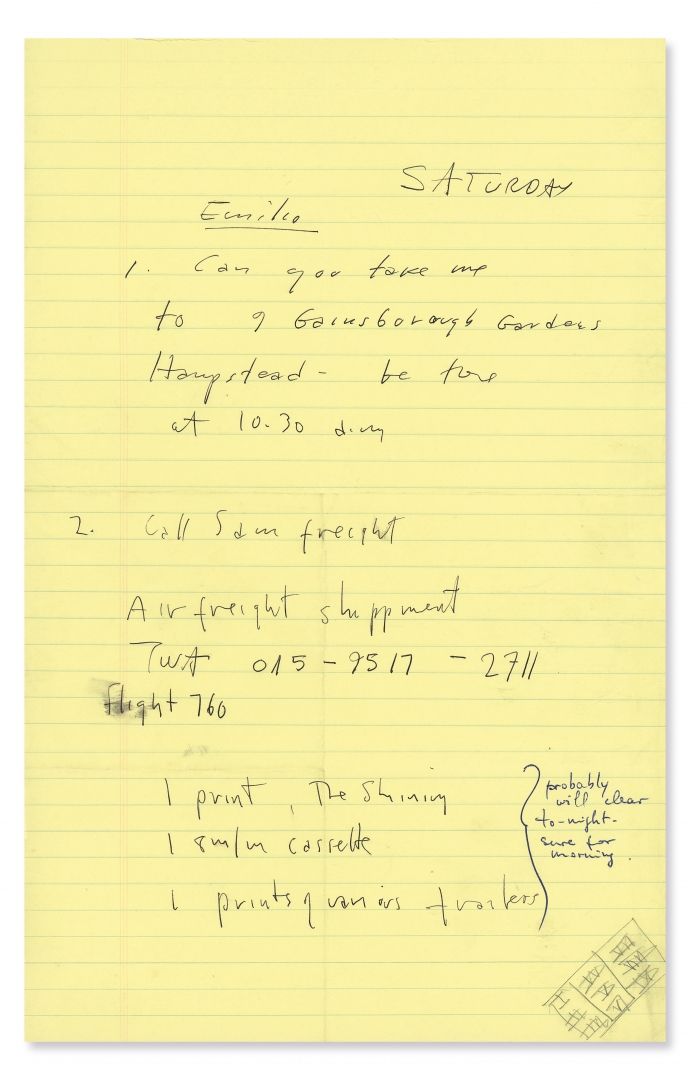 SATURDAY
Emilio
1. Can you take me
to 9 Gainsborough Gardens
Hampstead - be here
at 10.30
2. Call Sam freight
Air freight shippment
TWA 015-9517-2711
flight 760
1 print, The Shining
1 8m/m cassette
1 prints of various trailers
probably
will clear
to-night-
sure for
morning.